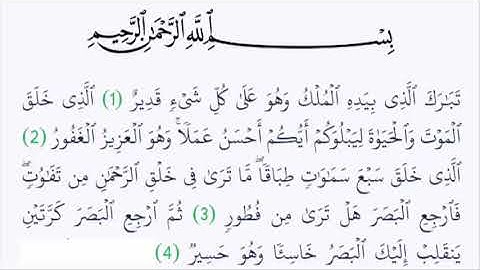 بِسْمِ ٱللَّهِ ٱلرَّحْمَٰنِ ٱلرَّحِيمِ
تَبَٰرَكَ ٱلَّذِى بِيَدِهِ ٱلْمُلْكُ وَهُوَ عَلَىٰ كُلِّ شَىْءٍ قَدِيرٌ (1) ٱلَّذِى خَلَقَ
ٱلْمَوْتَ وَٱلْحَيَوٰةَ لِيَبْلُوَكُمْ أَيُّكُمْ أَحْسَنُ عَمَلًا ۚ وَهُوَ ٱلْعَزِيزُ ٱلْغَفُورُ (2)
ٱلَّذِى خَلَقَ سَبْعَ سَمَٰوَٰتٍ طِبَاقًا ۖ مَّا تَرَىٰ فِى خَلْقِ ٱلرَّحْمَٰنِ مِن تَفَٰوُتٍ ۖ
فَٱرْجِعِ ٱلْبَصَرَ هَلْ تَرَىٰ مِن فُطُورٍ (3) ثُمَّ ٱرْجِعِ ٱلْبَصَرَ كَرَّتَيْنِ
يَنقَلِبْ إِلَيْكَ ٱلْبَصَرُ خَاسِئًا وَهُوَ حَسِيرٌ (4)